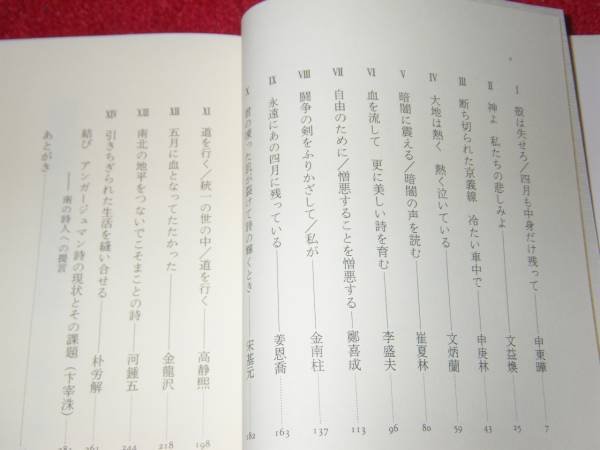 Ⅰ 殻は失せろ／四月も中身だけ残って——申東曄……7
Ⅱ 神よ 私たちの悲しみよ——文益煥……25
Ⅲ 断ち切られた京義線 冷たい車中で——申庚林……43
Ⅳ 大地は熱く 熱く泣いている——文炳蘭……59
Ⅴ 暗闇に震える／暗闇の声を読む——崔夏林……80
Ⅵ 血を流して 更に美しい詩を育む——李盛夫……96
Ⅶ 自由のために／憎悪することを憎悪する——鄭喜成……113
Ⅷ 闘争の剣をふりかざして／私が——金南柱……137
Ⅸ 永遠にあの四月に残っている——姜恩喬……163
Ⅹ の凍った肌が裂けて詩の輝くとき——宋基元……182
Ⅺ 道を行く／統一の世の中／道を行く——高静熙……198
Ⅻ 五月に血となってたたかった——金龍沢……218
XIII 南北の地平をつないでこそまことの詩——河鍾五……244
XIV 引きちぎられた生活を縫い合せる——朴労解……261
結び アンガージュマン詩の現状とその課題（卞宰洙）
——南の詩人への提言……
あとがき……